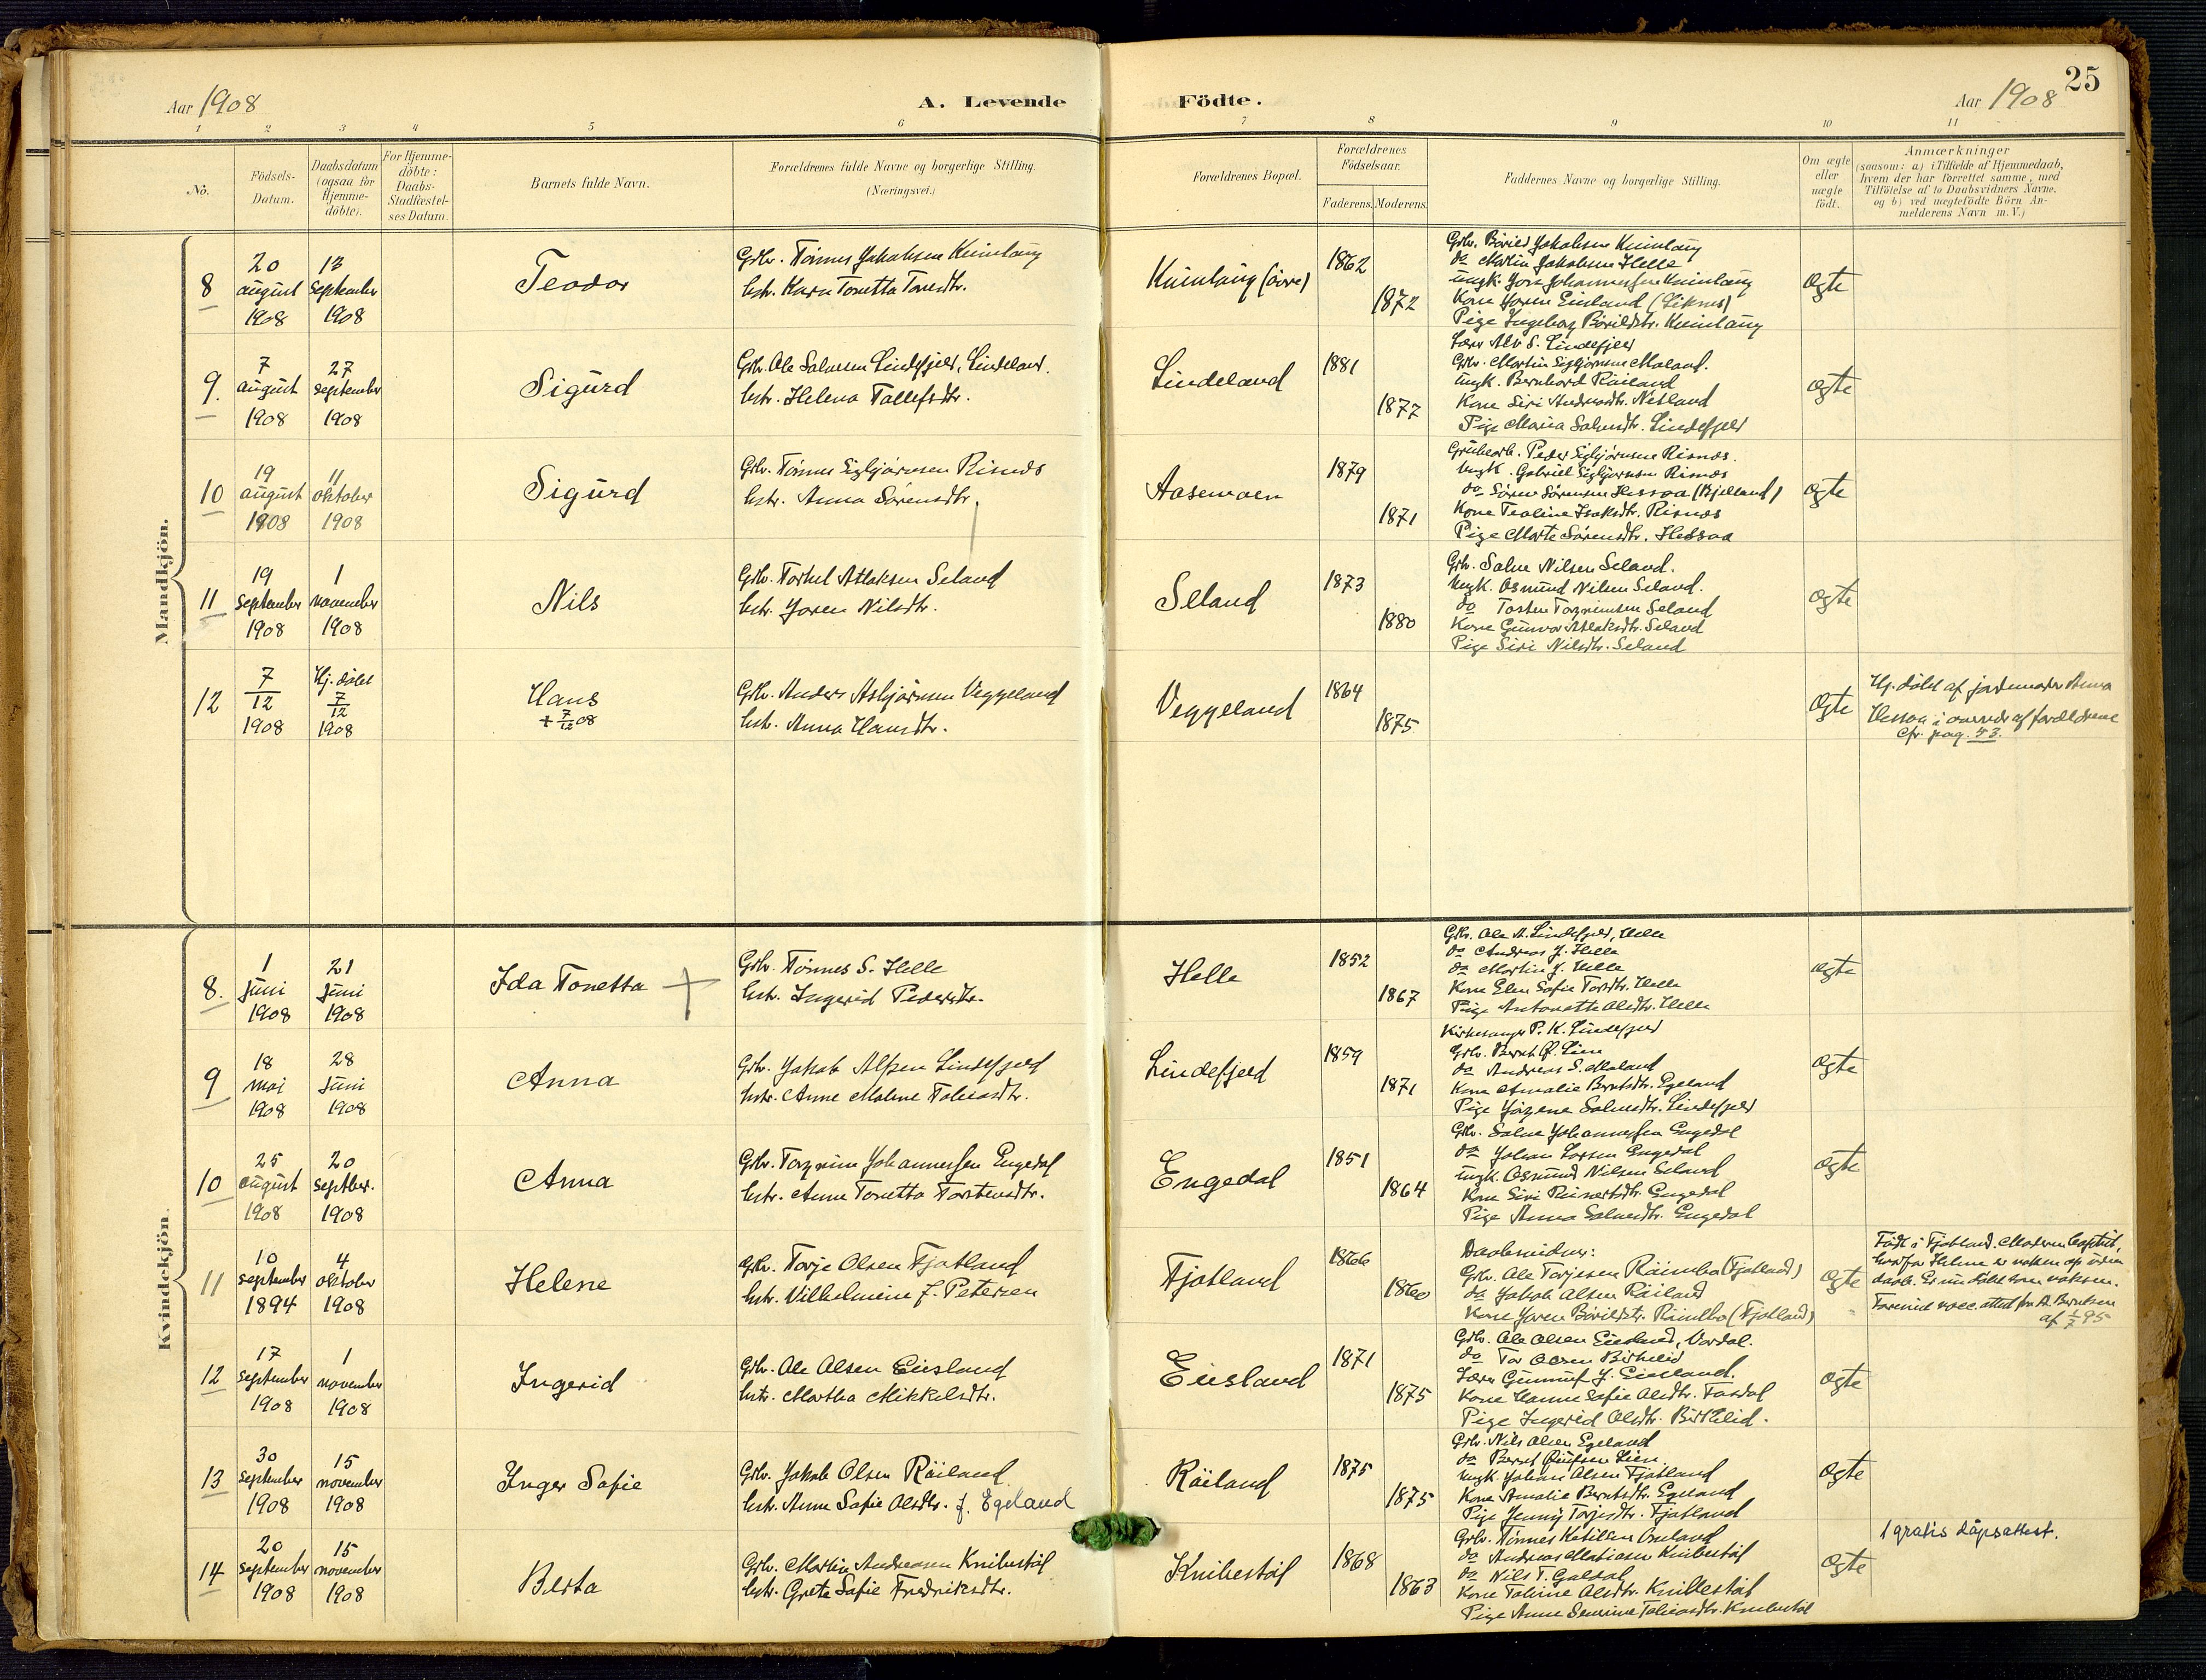 25
Aar 1908
A. Levende
Födte.
Aar 1908
1 2 3 4 5 6 7 8 9 10 11
No.
Födsels-Datum.
Daabsdatum (ogsaa for Hjemme-döbte).
For Hjemme-döbte: Daabs-Stadfæstel-ses Datum.
Barnets fulde Navn.
Forældrenes fulde Navne og borgerlige Stilling.
(Næringsvei.)
Forældrenes Bopæl.
Forældrenes Födselsaar.
Faderens. Moderens.
Faddernes Navne og borgerlige Stilling.
Om ægte eller uægte födt.
Anmærkninger
(saasom: a) i Tilfælde af Hjemmedaab,
hvem der har forrettet samme, med
Tilföielse af to Daabsvidners Navne,
og b) ved uægtefödte Börn An-
melderens Navn m. V.)
Mandkjön.
8
20 august 1908
13 september 1908
Teodor
Grbr. Tönnes Jakobsen Kvinlaug
hstr. Karn Tonetta Tonesdtr.
Kvinlaug (övre)
1862
1872
Grbr. Böried Jakobsen Kvinlaug
do Martin Jakobsen Helle
ungk. Johannessen Kvinlaug
Kone Joren Eisland
Pige Ingeborg Börildsdtr. Kvinlaug
ægte
9.
7 august 1908
27 september 1908
Sigurd
Grbr. Ole Salvesen Lindefjeld, Lindeland.
hstr. Helena Tollefsdtr.
Lindeland
1881
1877
Lærer Alv S. Lindefjeld
Grbr. Martin Sigbjörnsen Moland.
ungk. Bernhard Röiland
Kone Siri Andreasdtr. Netland
Pige Maria Salvesdtr. Lindefjeld
ægte
10
19 august 1908
11 oktober 1908
Sigurd
Grbr. Tönnes Sigbjörnsen Risnes
hstr. Anna Sörensdtr.
Aasemoen
1879
1871
Grubearb. Peder Sigbjörnsen Risnes.
ungk. Gabriel Sigbjörnsen Risnes
do Sören Sörensen Hessaa (Bjelland)
Kone Teoline Isaksdtr. Risnes
Pige Marte Sörensdtr. Hessaa
ægte
11
19 september 1908
1 november 1908
Nils
Grbr. Torkel Atlaksen Seland
hstr. Joren Nilsdtr.
Seland
1873
1880
Grbr. Salve Nilsen Seland.
ungk. Osmund Nilsen Seland.
do Torsten Torgrimsen Seland
Kone Gunvor Atlaksdtr. Seland
Pige Siri Nilsdtr. Seland
ægte
12
7/12 1908
Hj. döbt 7/12 1908
Hans
+ 7/12 08
Grbr. Anders Asbjörnsen Veggeland
hstr. Anna Hansdtr.
Veggeland
1864
1875
ægte
Hj. döbt af jordmoder Anna
Hessaa i overvær af forældrene
cfr. pag. 53.
Kvindekjön.
8.
1 juni 1908
21 juni 1908
Ida Tonetta
Grbr. Tönnes S. Helle
hstr. Ingerid Pedersdtr.
Helle
1852
1867
Grbr. Ole A. Lindefjeld, Helle
do Andreas J. Helle
do Martin J. Helle
Kone Elen Sofie Torsdtr. Helle
Pige Antonette Olsdtr. Helle
ægte
9
18 mai 1908
28 juni 1908
Anna
Grbr. Jakob Alfsen Lindefjeld
hstr. Anne Malene Tobiasdtr.
Lindefjeld
1859
1871
Kirkesanger P. K. Lindefjeld
Grbr. Bernt Lien
do Andreas S. Moland
Kone Amalie Berntsdtr. Egeland
Pige Jörgene Salvesdtr. Lindefjeld
ægte
10
25 august 1908
20 septber. 1908
Anna
Grbr. Torgrim Johannessen Engedal
hstr. Anne Tonetta Torstensdtr.
Engedal
1851
1864
Grbr. Salve Johannessen Engedal
do Johan Larsen Engedal
ungk. Osmund Nilsen Seland
Kone Siri Reinertsdtr. Engedal
Pige Anna Salvesdtr. Engedal
ægte
11
10 september 1894
4 oktober 1908
Helene
Grbr. Torje Olsen Fjotland
hstr. Vilhelmine f. Petersen
Fjotland
1866
1860
Daabsvidner:
Grbr. Ole Torjesen (Fjotland)
do Jakob Olsen Röiland
Kone Joren Börildsdtr. (Fjotland)
ægte
Födt i Fjotland. Moderen baptist,
hvorfor Helene er voksen op uden
daab. Er nu döbt som voksen.
Foreviste vacc. attest fra A. Berntsen
af 95
12
17 september 1908
1 november 1908
Ingerid
Grbr. Ole Olsen Eiesland
hstr. Martha Mikkelsdtr.
Eiesland
1871
1875
Grbr. Ole Olsen Eiesland,
do Tor Olsen Birkelid
Lærer Gunnuf J. Eiesland.
Kone Hanne Sofie Olsdtr.
Pige Ingerid Olsdtr. Birkelid.
ægte
13
30 september 1908
15 november 1908
Inger Sofie
Grbr. Jakob Olsen Röiland.
hstr. Anne Sofie Olsdtr. f. Egeland
Röiland
1875
1875
Grbr. Nils Olsen Egeland
do Bernt Lien.
ungk. Johan Olsen Fjotland
Kone Amalie Berntsdtr. Egeland
Pige Jenny Torjesdtr. Fjotland
ægte
14
20 september 1908
15 november 1908
Berta
Grbr. Martin Andreasen Knibestöl
hstr. Grete Sofie Fredriksdtr.
Knibestöl
1868
1863
Grbr. Tönnes Ketilsen Omland
do Andreas Mathiasen Knibestöl
do Nils T. Galdal
Kone Taline Olsdtr. Knibestöl
Pige Anne Severine Tobiasdtr. Knibestöl
ægte
1 gratis dåpsattest.